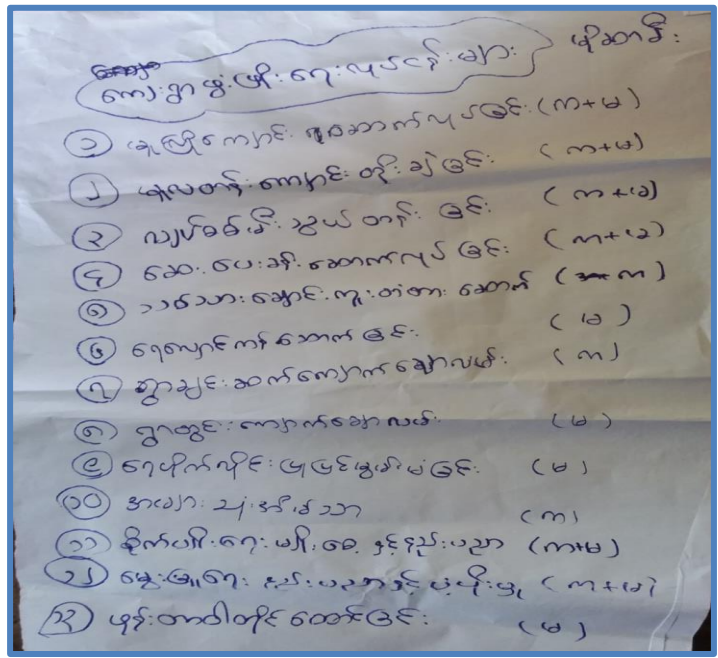 ကျေးရွာဖွံ့ဖြိုးရေးလုပ်ငန်းများ
၁ မူကြိုကျောင်း ဆောက်လုပ်ခြင်း (က+မ)
၂ မူလတန်းကျောင်း တိုးချဲ့ခြင်း (က+မ)
၃ လျှပ်စစ်မီး သွယ်တန်းခြင်း (က+မ)
၄ ဆေးပေးခန်း ဆောက်လုပ်ခြင်း (က+မ)
၅ ချောင်းကူးတံတား ဆောက် (က)
၆ ရေလှောင်ကန် ဆောက်ခြင်း (မ)
၇ ရွာချင်းဆက်ကျောက်ချောလမ်း (က)
၈ ရွာတွင်းကျောက်ချောလမ်း (မ)
၉ ရေပိုက်လိုင်း ပြုပြင်မွမ်းမံခြင်း (မ)
၁၀ အများသုံးအိမ်သာ (က)
၁၁ စိုက်ပျိုးရေး မျိုးစေ့ နှင့်နည်းပညာ (က+မ)
၁၂ မွေးမြူရေး နည်းပညာနှင့် ပံ့ပိုးမှု (က+မ)
၁၃ ဖုန်းတာဝါတိုင် ထောင်ခြင်း (မ)